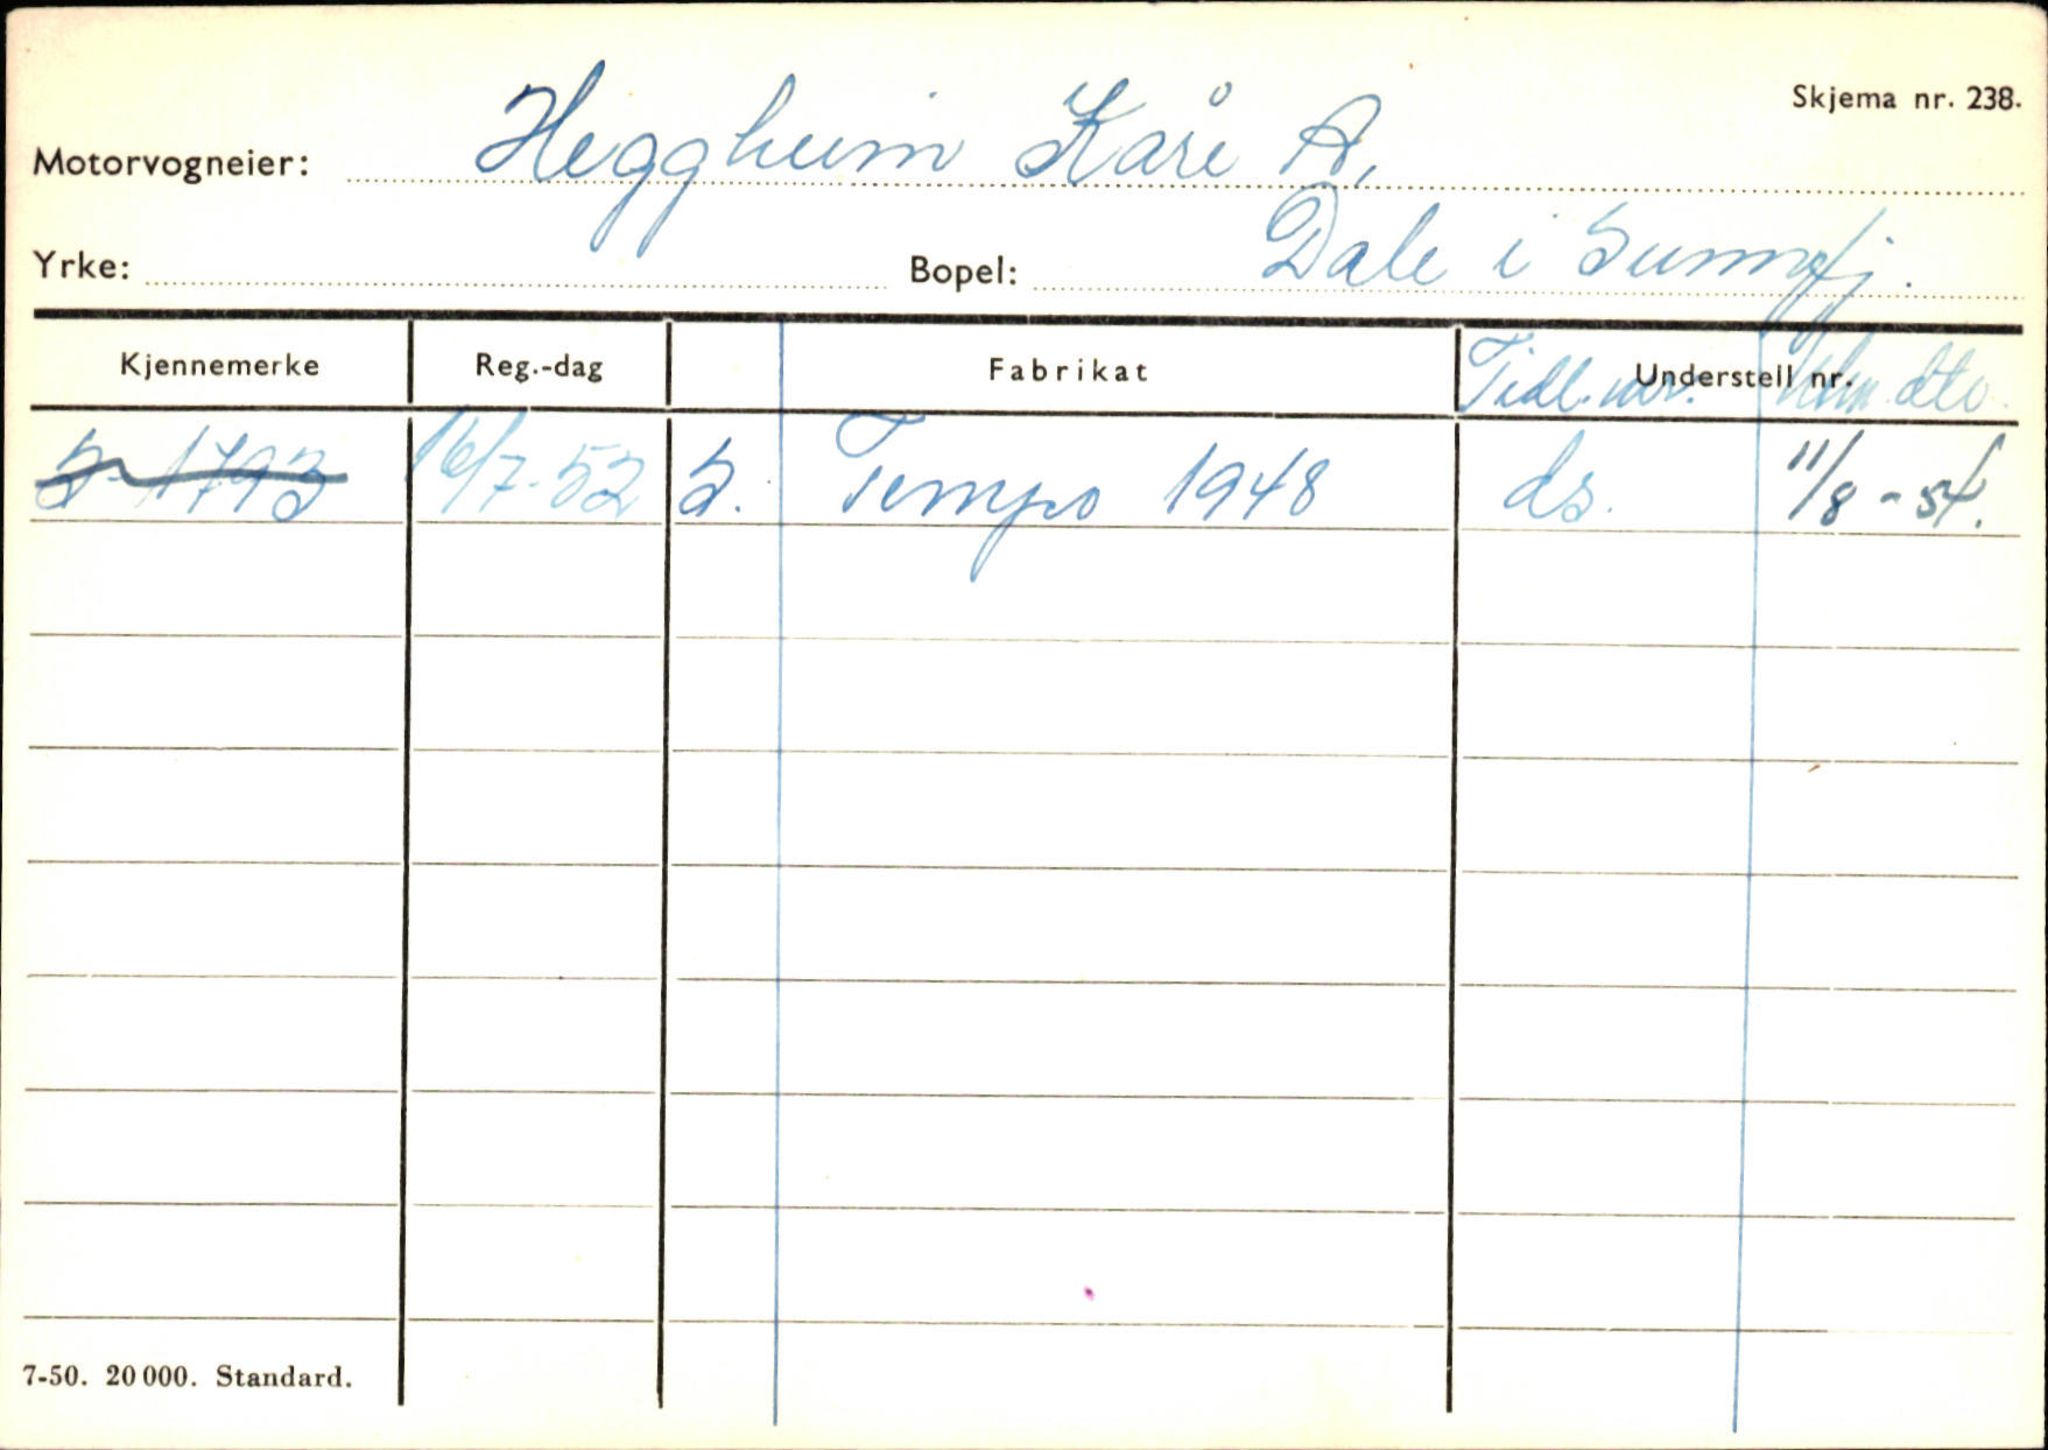 Skjema nr. 238.
Motorvogneier: Heggheim Kåre A.
Yrke: Bopel: Dale i Sunnfj.
Kjennemerke Reg.-dag Fabrikat Understell nr. Tidl. nr. dto.
S-1793 16/7-52 S. Tempo 1948 ds. 11/8-54.
7-50. 20 000. Standard.